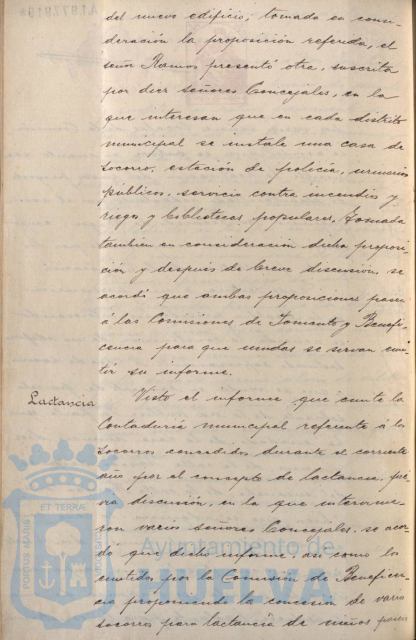 del nuevo edificio; tomada en consi-
deración la proposición referida, el
señor Ramos presentó otra, suscrita
por diez señores Concejales, en la
que interesan que en cada distrito
municipal se instale una casa de
socorro, estación de policía, urinarios
públicos, servicio contra incendios y
riegos y bibliotecas populares, tomada
también en consideración dicha proposi-
ción y después de breve discusión, se
acordó que ambas proposiciones pasen
á las Comisiones de Fomento y Benefi-
cencia para que unidas se sirvan emi-
tir su informe.
Lactancia
Visto el informe que emite la
Contaduría municipal referente á los
socorros concedidos durante el corriente
año por el concepto de lactancia, pré-
via discusión, en la que intervinie-
ron varios señores Concejales, se acor-
dó que dicho informe, así como los
emitidos por la Comisión de Beneficen-
cia proponiendo la concesión de varios
socorros para lactancia de niños pobres
PORTUS MARIS
ET TERRAE
CUSTODIA
Ayuntamiento de
HUELVA